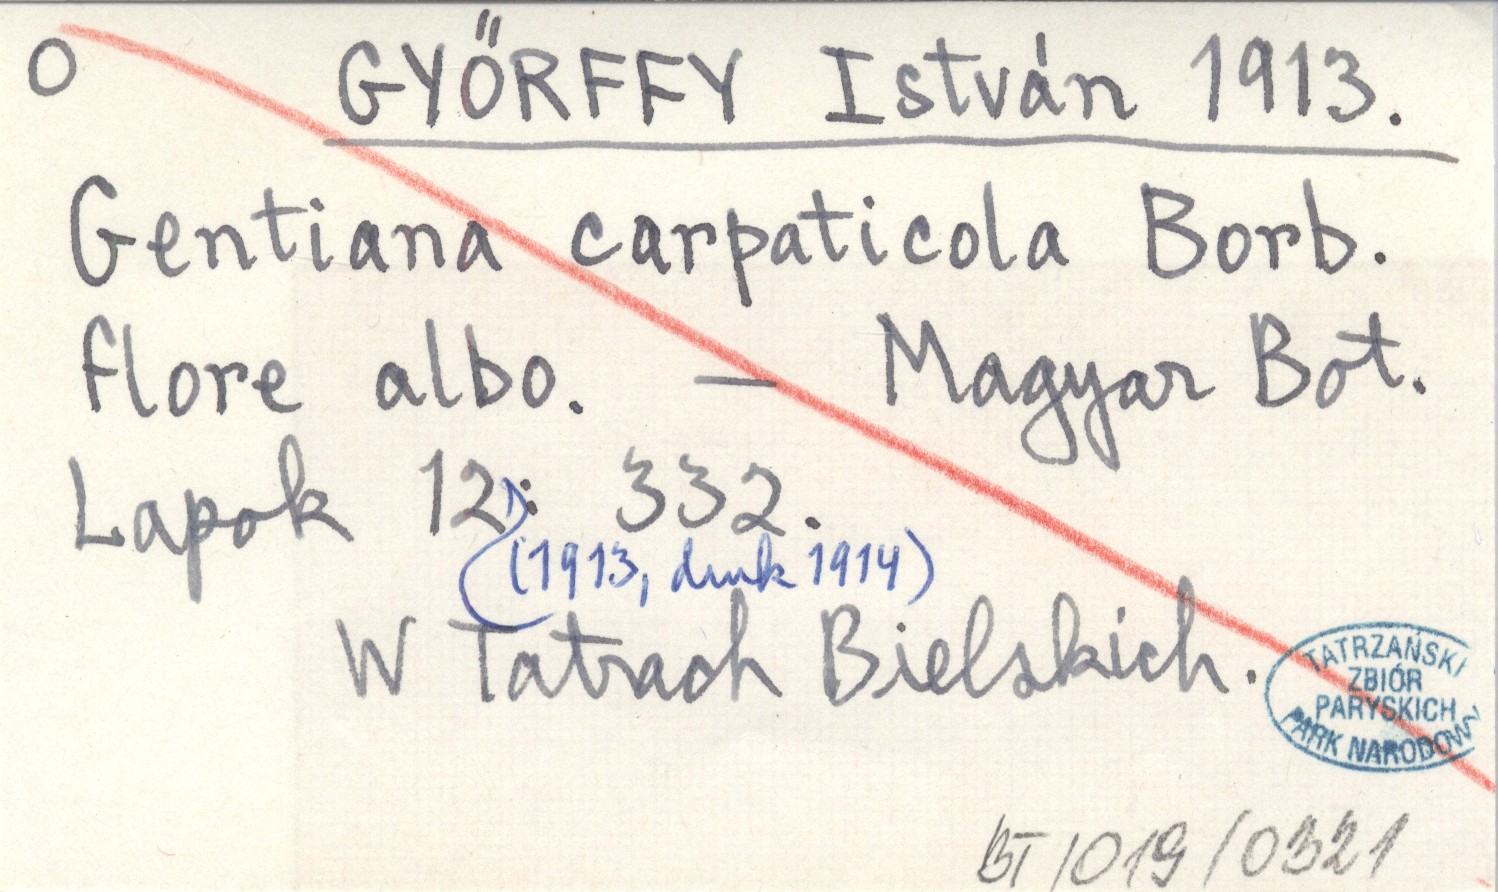 O GYŐRFFY István 1913.
Gentiana carpaticola Borb.
flore albo. — Magyar Bot.
Lapok 12: 332.
(1913, druk 1914)
W Tatrach Bielskich.
TATRZAŃSKI
ZBIÓR
PARYSKICH
PARK NARODOWY
BT/019/0321